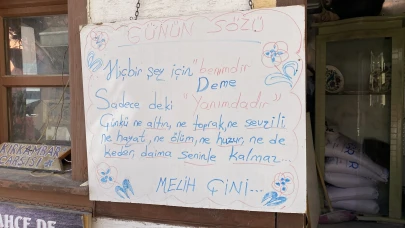 GÜNÜN SÖZÜ
Hiçbir şey için "benimdir"
Deme
Sadece deki "Yanımdadır."
Çünkü ne altın, ne toprak, ne sevgili,
ne hayat, ne ölüm, ne huzur, ne de
keder, daima seninle kalmaz...
MELİH ÇİNİ...
KIRKAMBAR
ÇARŞISI
AHÇE DE